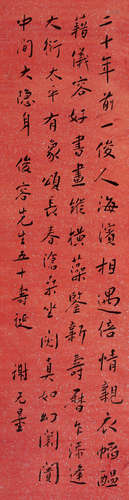 二十年前一俊人海濱相遇倍情親衣醞
籍儀容好書畫縱橫藻鑒新壽曆乍添逢
大衍太平有象頌長春滄桑坐閱真如幻闤闠
中間大隱身 俊容先生五十壽誕 謝无量